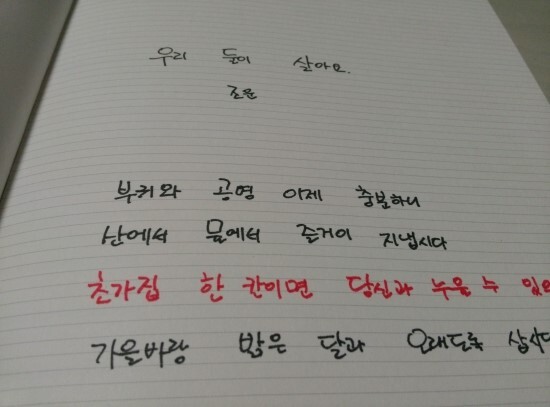 우리 둘이 살아요.
조운
부귀와 공명 이제 충분하니
산에서 물에서 즐거이 지냅시다
초가집 한 칸이면 당신과 누울 수
가을바람 밝은 달과 오래도록 삽시다